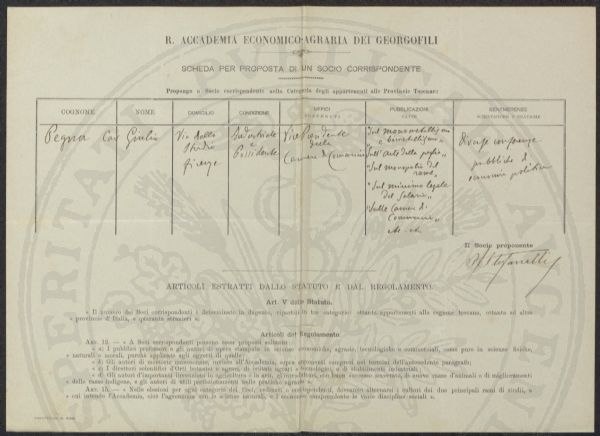 R. ACCADEMIA ECONOMICO-AGRARIA DEI GEORGOFILI
SCHEDA PER PROPOSTA DI UN SOCIO CORRISPONDENTE
Propongo a Socio corrispondente nella Categoria degli appartenenti alle Provincie Toscane:
COGNOME NOME DOMICILIO CONDIZIONE UFFICI PUBBLICAZIONI BENEMERENZE
Pegna Cav Giulio Via dello Studio Firenze
Industriale e Possidente
Vice Presidente della Camera di Comercio
"Sul monometallismo e bimetallismo"
"Sull'arte della
"Sul monopolio del rame"
"Sul minimo legale del Salario"
"Sulle Camere di Commercio"
Diverse conferenze pubbliche di economia politica
Il Socio proponente
ARTICOLI ESTRATTI DALLO STATUTO E DAL REGOLAMENTO.
Art. V dello Statuto.
« Il numero dei Soci corrispondenti è determinato in dugento, ripartiti in tre categorie: ottanta appartenenti alla regione toscana, ottanta ad altre
« provincie d'Italia, e quaranta stranieri ».
Articoli del Regolamento
ART. 12. — « A Soci corrispondenti possono esser proposti soltanto:
« a) I pubblici professori o gli autori di opere stampate in scienze economiche, agrarie, tecnologiche o commerciali, come pure in scienze fisiche,
« naturali o morali, purchè applicate agli oggetti di quelle;
« b) Gli autori di memorie manoscritte, inviate all'Accademia, sopra argomenti compresi nei termini dell'antecedente paragrafo;
« c) I direttori scientifici d'Orti botanici o agrari, di istituti agrari o tecnologici, o di stabilimenti industriali;
« d) Gli autori d'importanti invenzioni in agricoltura o in arti, gl'introduttori, con buon successo accertato, di nuove razze d'animali o di miglioramenti
« delle razze indigene, e gli autori di utili perfezionamenti nelle pratiche agrarie ».
ART. 15. — « Nelle elezioni per ogni categoria dei Soci, ordinari o corrispondenti, dovranno alternarsi i cultori dei due principali rami di studii, a
« cui intende l'Accademia, cioè l'agronomia con le scienze naturali, e l'economia comprendente le varie discipline sociali ».